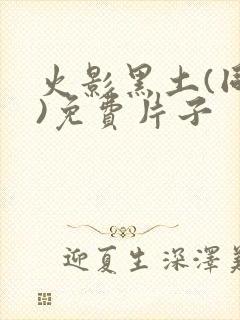 火影黑土(同
)免費片子
迎夏生深澤美